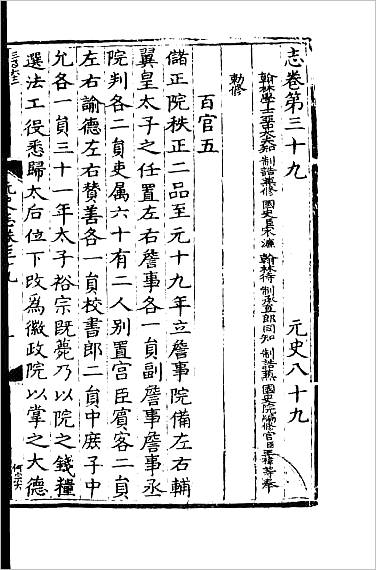 志卷第三十九 元史八十九
翰林學士亞中大夫知制誥兼修國史臣宋濂 翰林待制承直郎同知制誥兼國史院編修官臣王禕等奉
勅修
百官五
儲正院秩正二品至元十九年立詹事院備左右輔
翼皇太子之任置左右詹事各一員副詹事詹事丞
院判各二員吏属六十有二人别置宫臣賓客二員
左右諭德左右賛善各一員校書郎二員中庶子中
允各一員三十一年太子裕宗既薨乃以院之錢糧
選法工役悉歸太后位下改為徽政院以掌之大德